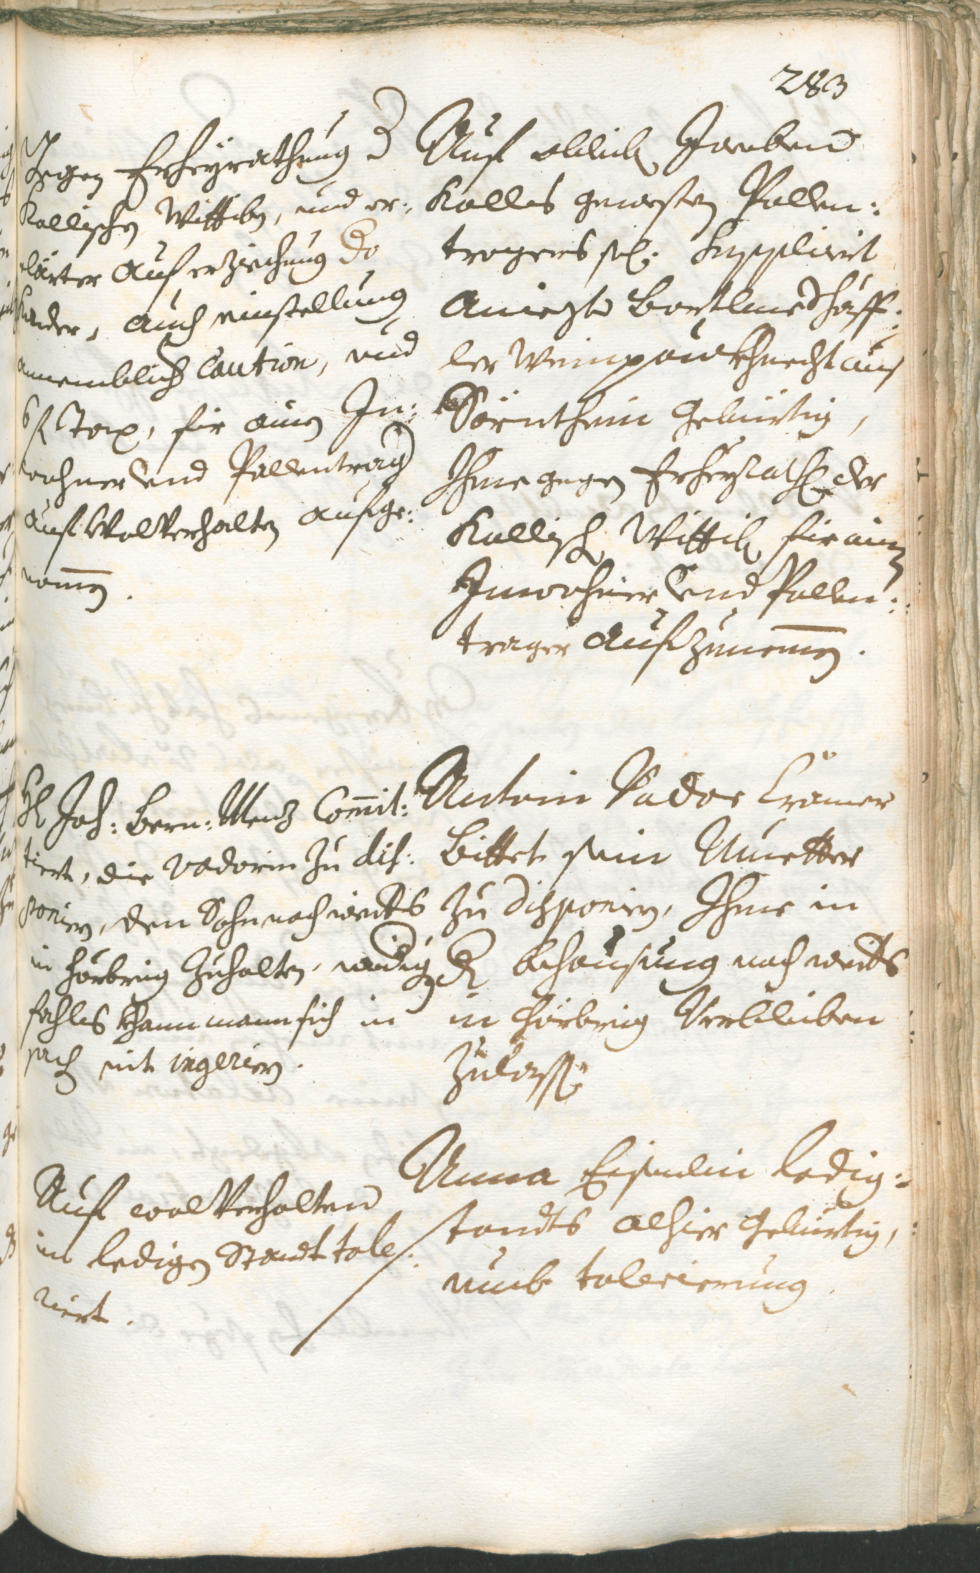 283
Gegen Erheyrathung d
Kallischen Wittiben, und er-
clärter auferziehung do
Kinder, auch einstellung
annemblicher Caution, und
6 f Tax, für ainen In-
wohner und Pallentrager
auf Wolverhalten aufge-
nomen.
Auf ableib Jacoben
Kallis gewesten Pallen:
tragers sel: Supplicirt
aniezt Bartlme Schäff-
ler Weinpaur Khnecht aus
Särnthein gebürtig,
Ihme gegen Erheyrath der
Kallisch Wittib für ainen
Inwohner und Pallen:
trager aufzunemen.
H Joh: Bern: Menz Comit:
tirt, die Vadorin zu dis:
poniern, den Sohn nach werts
in Hörberig zuhalten, widrigen
fahls khann mann sich in
sach nit ingeriern.
Antoni Vador Cramer
bittet sein Muetter
zu disponiern, Ihme in
der behausung nach werts
in Hörberig Verbleiben
zulassen
Auf wolverhalten
im ledigen Standt tole-
riert.
Anna ledig:
standts alhier gebürtig,
umb tolerierung.